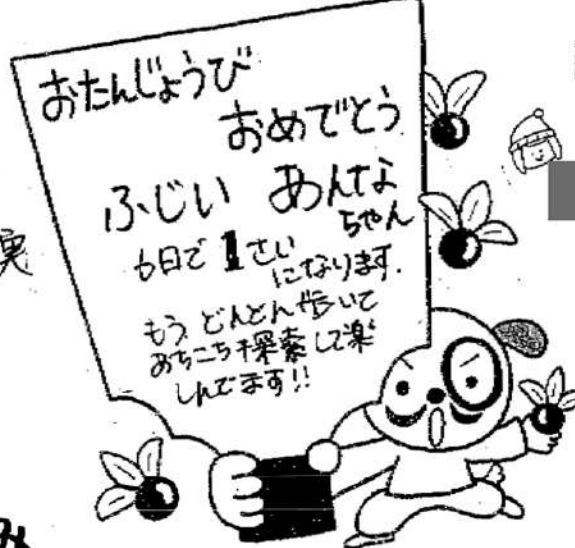 おたんじょうび
おめでとう
ふじい あんな
ちゃん
6日で 1さい
になります.
もう どんどん歩いて
あちこち探索して楽
しんでます!!
実